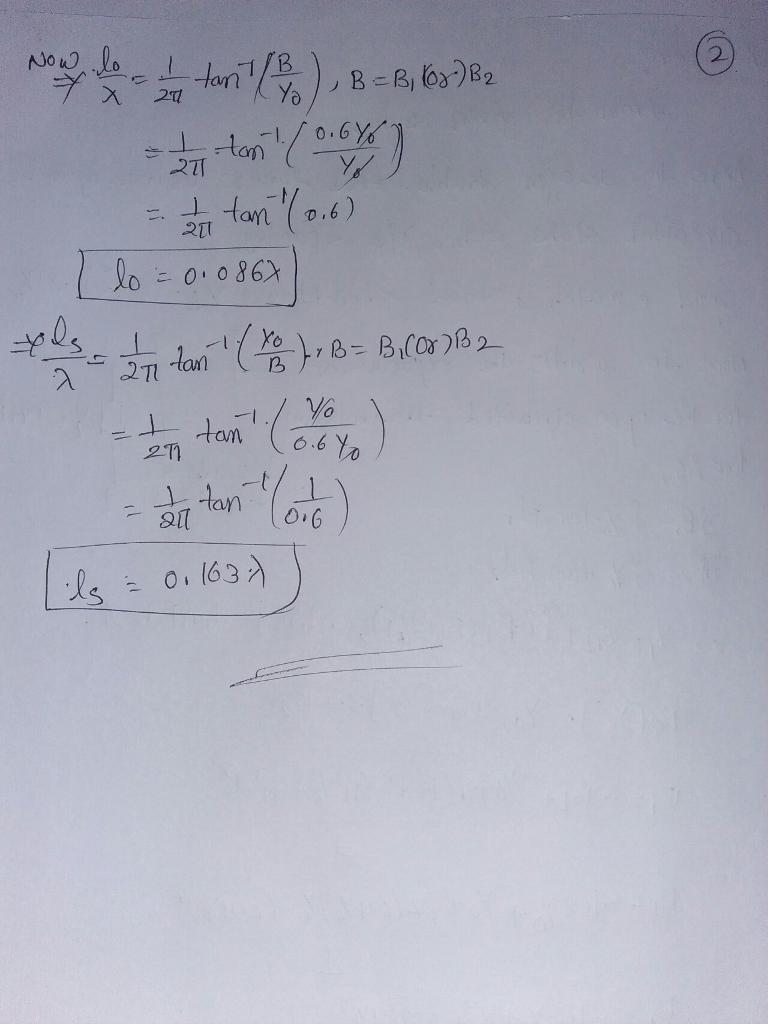 2
Now
⇒ lo/λ = 1/2π tan⁻¹(B/Y0), B = B1 (Or) B2
= 1/2π tan⁻¹(0.6Y0/Y0)
= 1/2π tan⁻¹(0.6)
lo = 0.086λ
⇒ ls/λ = 1/2π tan⁻¹(Y0/B), B = B1 (Or) B2
= 1/2π tan⁻¹(Y0/0.6Y0)
= 1/2π tan⁻¹(1/0.6)
ls = 0.163λ